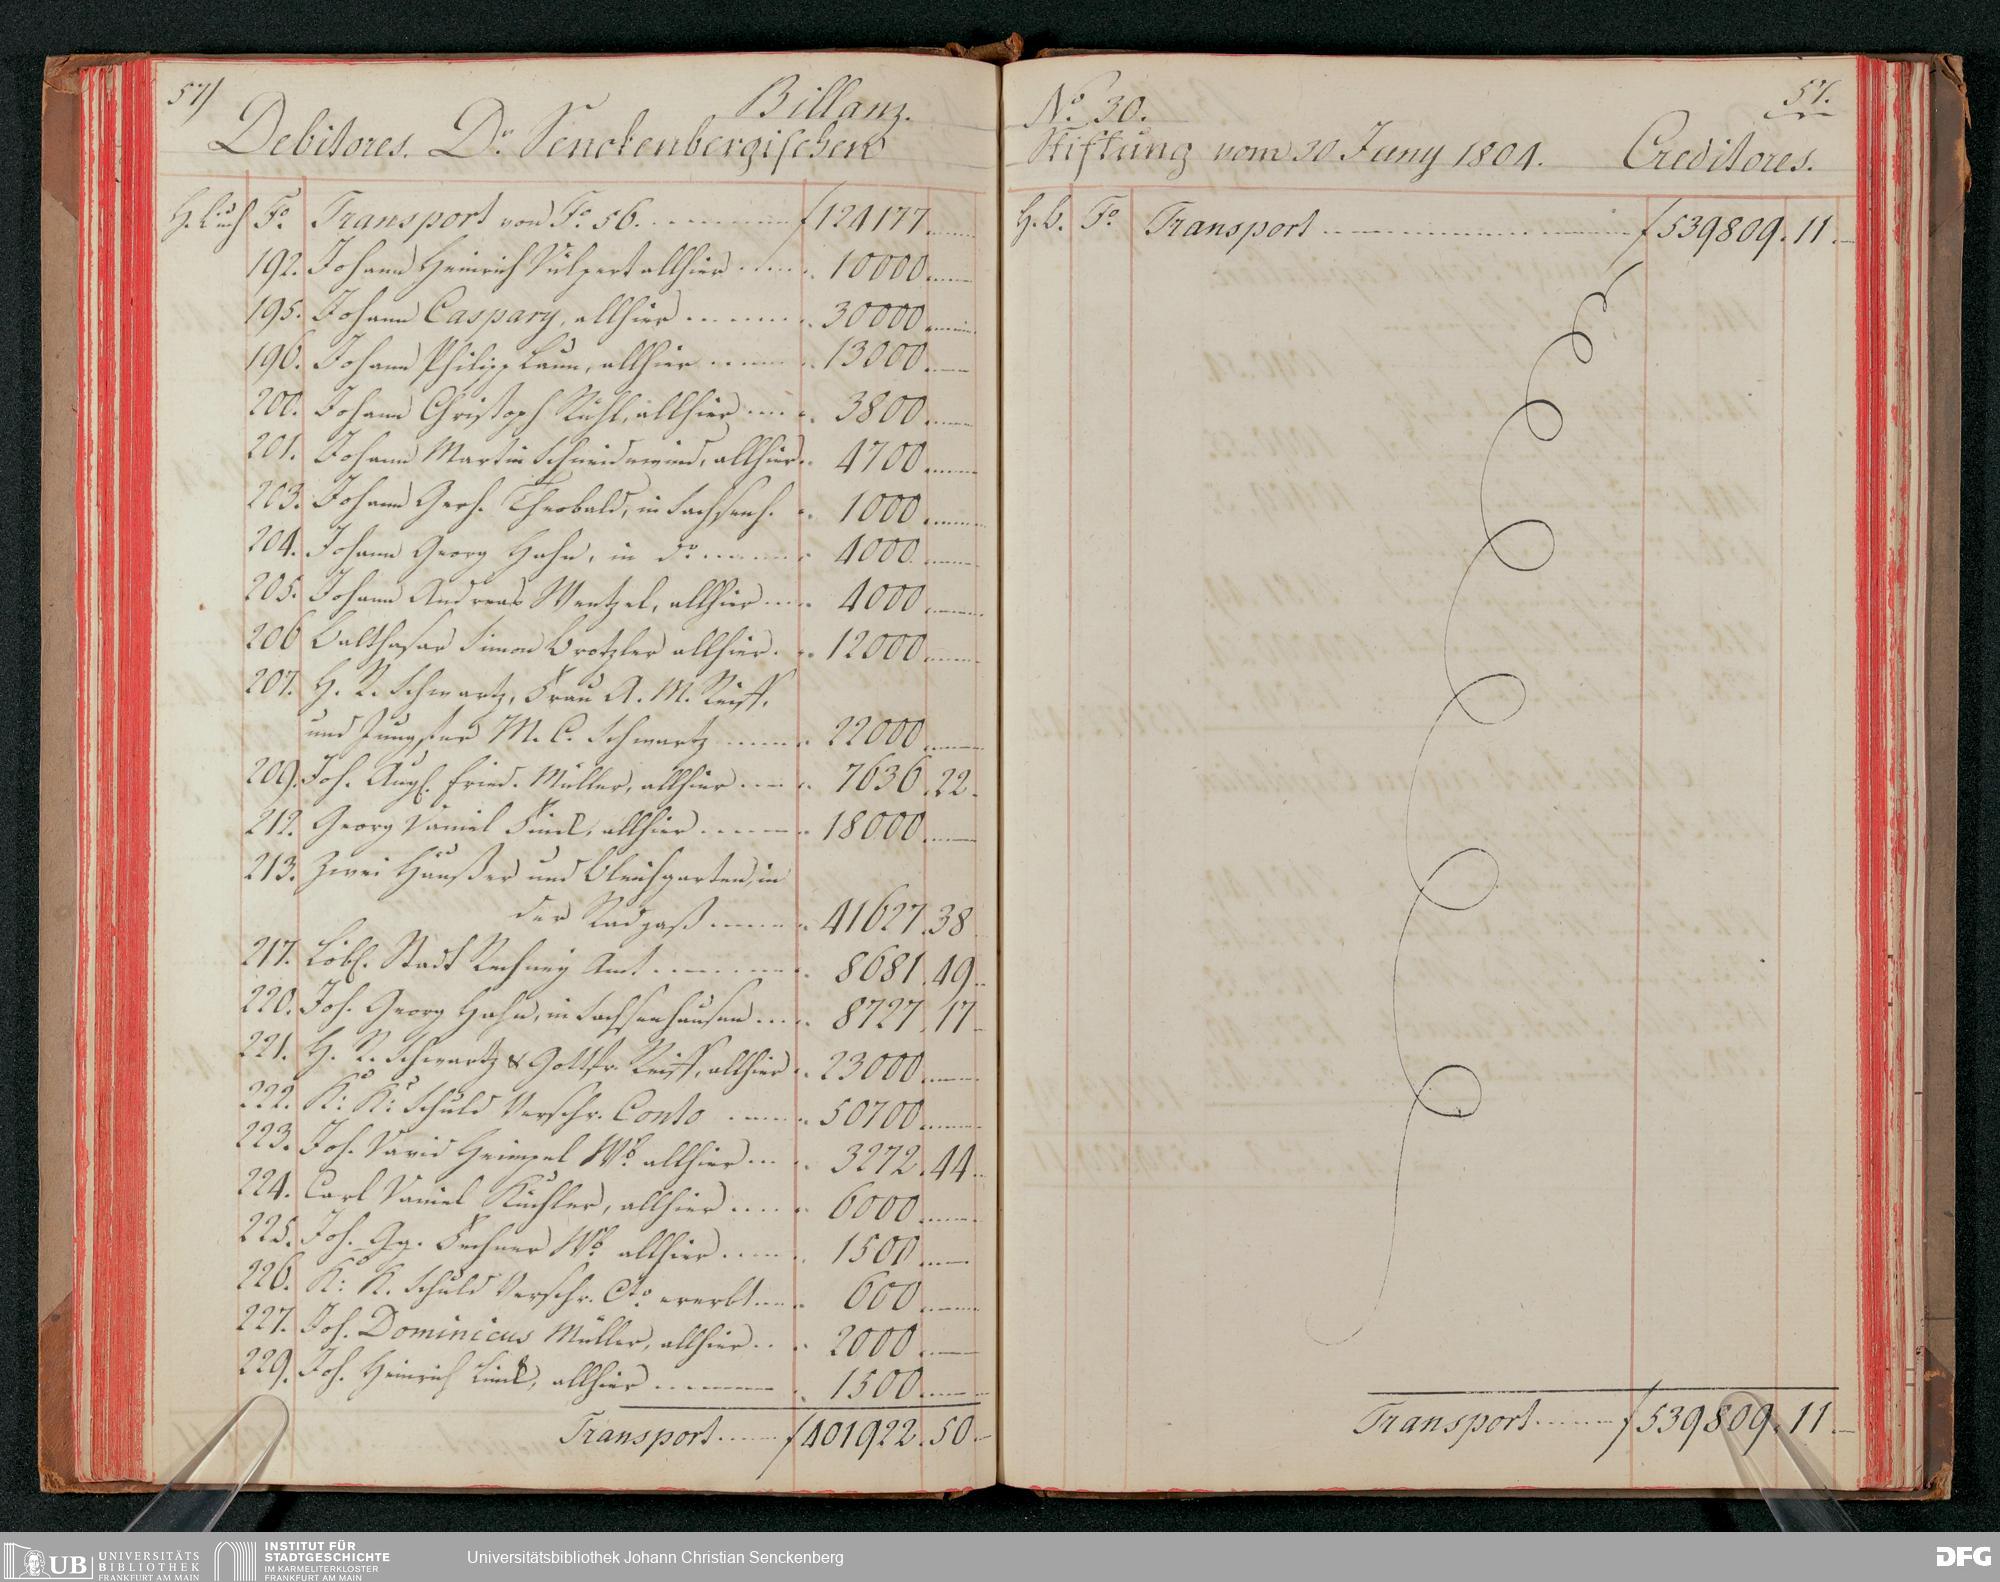 57)
Billanz.
Debitores. Dr. Senckenbergischen
H. Buch Fo. Transport von Fo. 56. f 124177.
192. Johann Heinrich Vulpert allhier 10000.
195. Johann Caspary, allhier 30000.
196. Johann Philipp Laun, allhier 13000.
200. Johann Christoph Ruhl, allhier 3800.
201. Johann Martin Schneidewind, allhier 4700.
203. Johann Gerh. Theobald, in Sachsenh. 1000.
204. Johann Georg Hahn, in do. 4000.
205. Johann Andreas Wentzel, allhier 4000.
206 Balthasar Simon Brotzler allhier. 12000.
207. H. R. Schwartz, Frau A. M. Reiff.
und Jungfer M. C. Schwartz 22000.
209. Joh. Augs. Fried. Müller, allhier 7636.22.
212. Georg Daniel Finck, allhier 18000.
213. Zwei Häußer und Bleichgarten, in
der Radgaß 41627.38
217. Löbl. Stadt Rechney Amt 8681.49.
220. Joh. Georg Hahn, in Sachsenhausen 8727.17
221. H. R. Schwartz & Gottfr. Reiff, allhier 23000.
222. K: K: Schuld Verschr. Conto 50700.
223. Joh. David Heimpel Wb. allhier 3272.44.
224. Carl Daniel Küchler, allhier 6000.
225. Joh. Gg. Fechner Wb. allhier 1500.
226. K: K. Schuld Verschr. Cto. ererbt 600.
227. Joh. Dominicus Müller, allhier 2000.
229. Joh. Heinrich Linck, allhier 1500.
Transport f 401922.50.
No. 30.
57.
Stiftung vom 30 Juny 1804. Creditores.
H. B. Fo. Transport f 539809.11.
Transport f 539809.11.
UB UNIVERSITÄTS
BIBLIOTHEK
FRANKFURT AM MAIN
INSTITUT FÜR
STADTGESCHICHTE
IM KARMELITERKLOSTER
FRANKFURT AM MAIN
Universitätsbibliothek Johann Christian Senckenberg
DFG